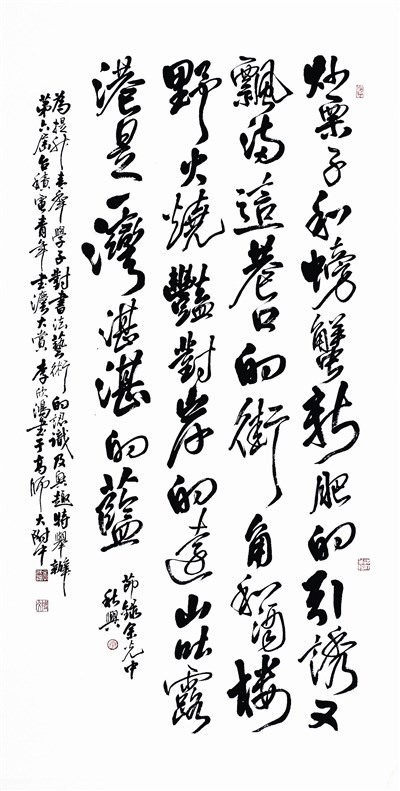 炒栗子和螃蟹新肥的引誘又
飄滿這巷口的街角和酒樓
野火燒豔對岸的遠山吐露
港是一灣湛湛的藍
節錄余光中
秋興
為提升學子對書法藝術的認識及興趣特舉辦
第六屆台積電青年書法大賞李欣鴻書于高師大附中